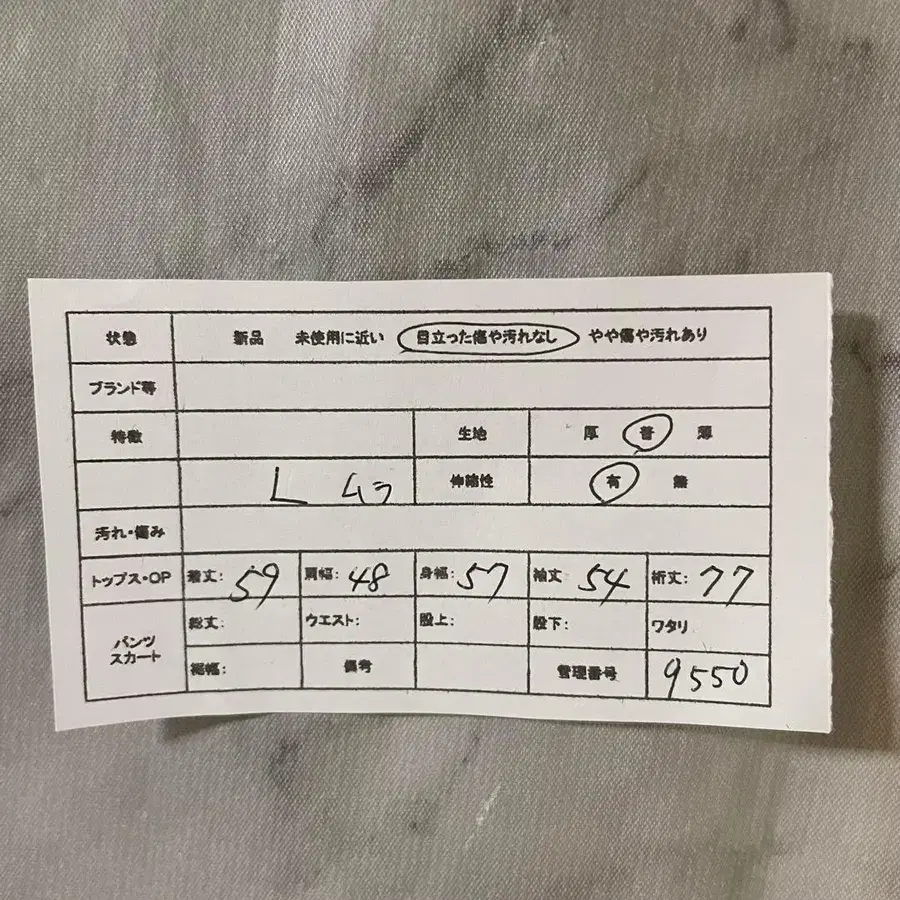 状態 新品 未使用に近い 目立った傷や汚れなし やや傷や汚れあり
ブランド等
特徴 生地 厚 普 薄
L ムラ 伸縮性 有 無
汚れ・傷み
トップス・OP 着丈: 59 肩幅: 48 身幅: 57 袖丈 54 裄丈: 77
パンツ スカート 総丈: ウエスト: 股上: 股下: ワタリ
裾幅: 備考 管理番号 9550